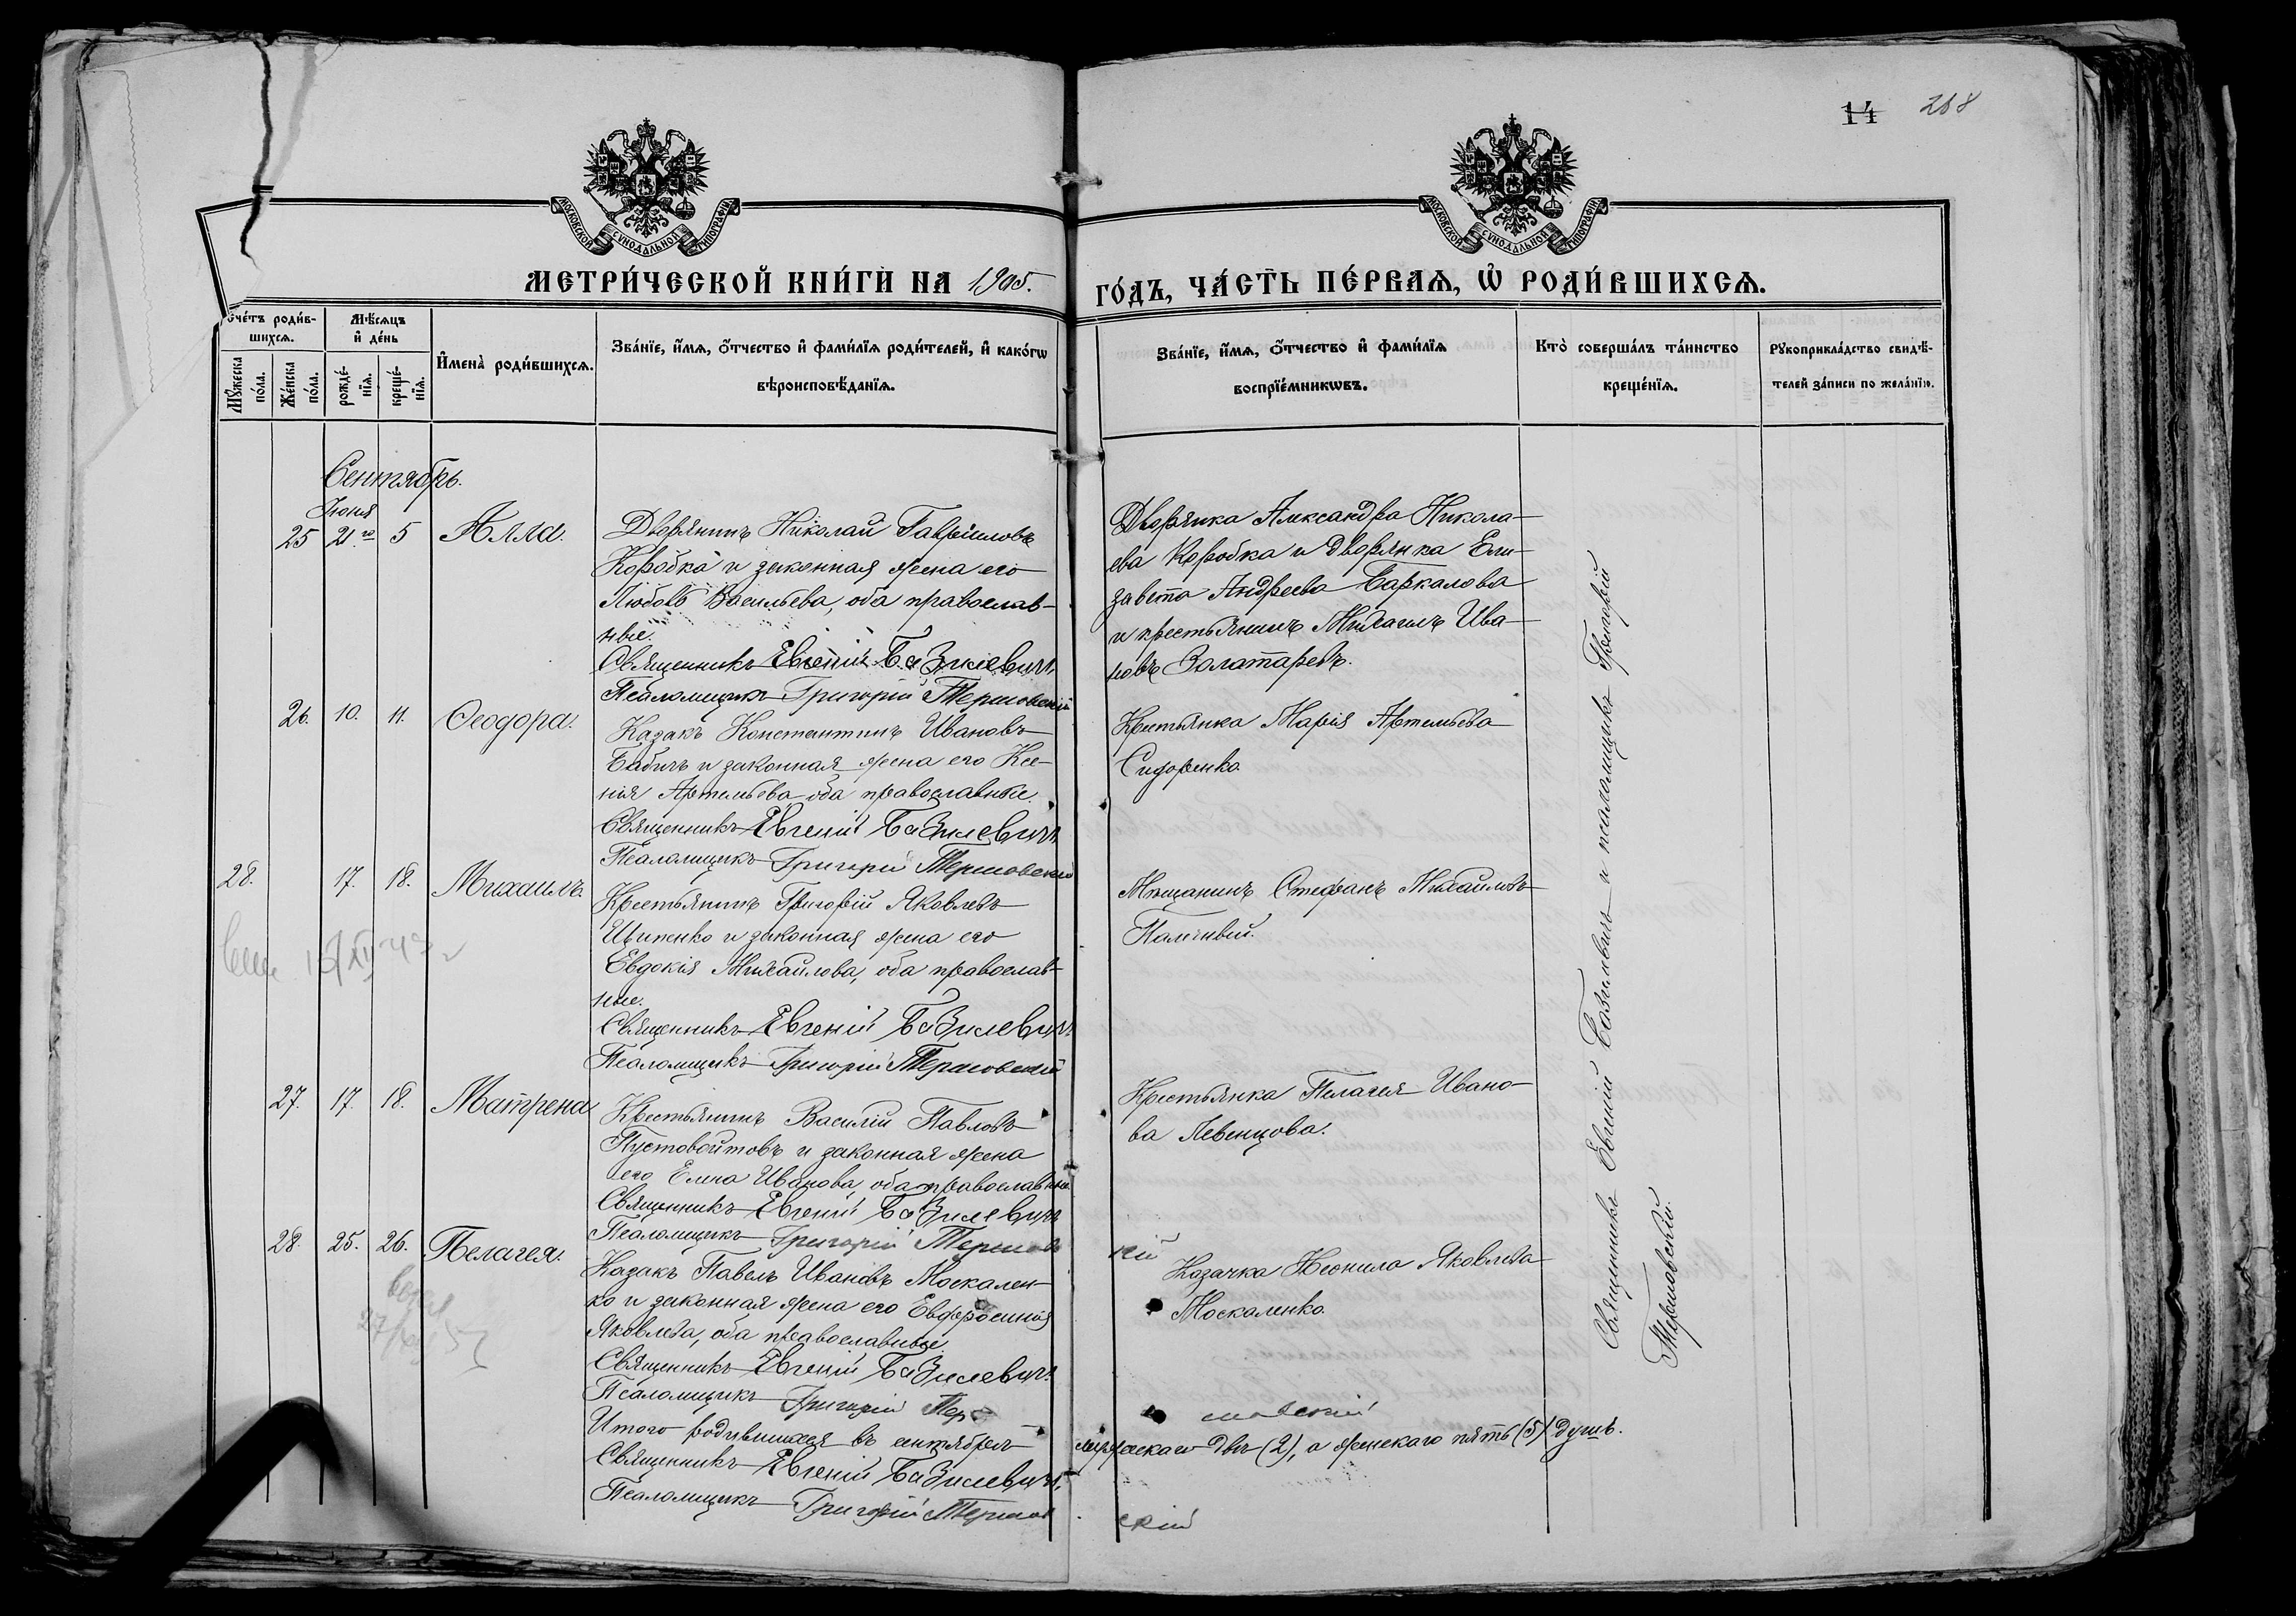 14 268
МОСКОВСКОЙ СУНОДАЛЬНОЙ ТИПОГРАФІИ
МОСКОВСКОЙ СУНОДАЛЬНОЙ ТИПОГРАФІИ
МЕТРИ́ЧЕСКОЙ КНИ́ГИ НА 1905.
ГО́ДЪ, ЧА́СТЬ ПЕ́РВАѦ, Ѡ҆ РОДИ́ВШИХСѦ.
Сче́тъ роди́в-
шихсѧ.
Мꙋ́жеска
по́ла.
Же́нска
по́ла.
Мѣ́сѧцъ
и҆ де́нь
рожде́-
нїѧ.
креще́-
нїѧ.
И҆мена̀ роди́вшихсѧ.
Зва́нїе, и҆́мѧ, ѻ҆́тчество и҆ фами́лїѧ роди́телей, и҆ како́гѡ
вѣроисповѣ́данїѧ.
Зва́нїе, и҆́мѧ, ѻ҆́тчество и҆ фами́лїѧ
воспрїе́мникѡвъ.
Кто̀ соверша́лъ та́инство
креще́нїѧ.
Рꙋкоприкла́дство свидѣ́-
телей за́писи по жела́нїю.
Сентябрь.
Іюня
25 21го 5 Алла.
Дворянинъ Николай Гавріиловъ
Коробка и законная жена его
Любовь Васильева, оба православ-
ные.
Священникъ Евгеній Базилевичъ
Псаломщикъ Григорій Терновскій
Дворянка Александра Никола-
ева Коробка и дворянка Ели-
завета Андреева Баркалова
и крестьянинъ Михаилъ Ива-
новъ Золатаревъ.
26. 10. 11. Ѳеодора.
Казакъ Константинъ Ивановъ
Бабичъ и законная жена его Ксе-
нія Артемьева оба православные.
Священникъ Евгеній Базилевичъ
Псаломщикъ Григорій Терновскій
Крестьянка Марія Артемьева
Сидоренко
28. 17. 18. Михаилъ.
Крестьянинъ Григорій Яковлевъ
Цыпенко и законная жена его
Евдокія Михаилова, оба православ-
ные.
Священникъ Евгеній Базилевичъ
Псаломщикъ Григорій Терновскій
Мѣщанинъ Стефанъ Михаиловъ
27. 17. 18. Матрена
Крестьянинъ Василій Павловъ
Пустовойтовъ и законная жена
его Елена Иванова, оба православные
Священникъ Евгеній Базилевичъ
Псаломщикъ Григорій Терновскій
Крестьянка Пелагея Ивано-
ва Левенцова.
28. 25. 26. Пелагея.
Казакъ Павелъ Ивановъ Москален-
ко и законная жена его Евфросинія
Яковлева, оба православные.
Священникъ Евгеній Базилевичъ
Псаломщикъ Григорій Терновскій
Казачка Неонила Яковлева
Москаленко
Итого родившихся въ сентябрѣ мужескаго два (2), а женскаго пять (5) душъ.
Священникъ Евгеній Базилевичъ
Псаломщикъ Григорій Терновскій
Священникъ Евгеній Базилевичъ и псаломщикъ Григорій
Терновскій.